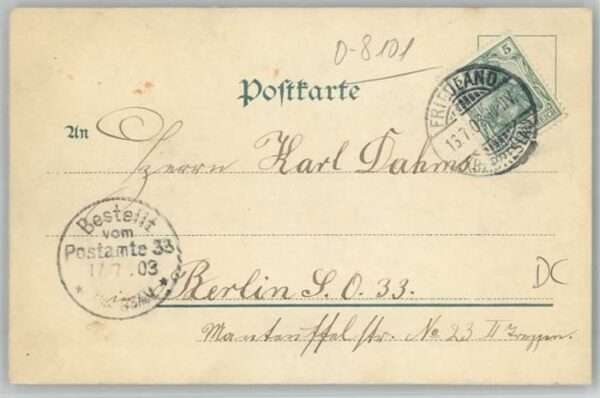 D-8101
5
Postkarte
FRIEDLAND
13.7.03
BRESLAU
An
Herrn Karl Dahms
Bestellt
vom
Postamte 33
17.7.03
Berlin S. O. 33.
DC
Manteuffelstr. No 23 II Treppen.